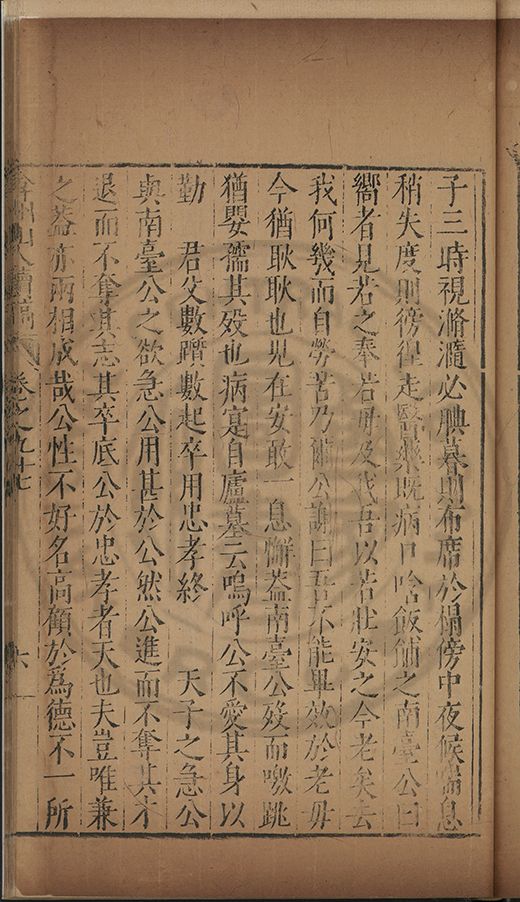 子三時視滫瀡必腆暮則布席於榻傍中夜候喘息
稍失度則徬徨走醫藥旣病口哈飯餔之南臺公曰
嚮者見若之奉若母及我吾以若壯安之今老矣去
我何幾而自勞苦乃爾公謝曰吾不能畢效於老母
今猶耿耿也見在安敢一息懈葢南臺公歿而噭跳
猶嬰孺其歿也病寔自廬墓云嗚呼公不愛其身以
勤　君父數躓數起卒用忠孝終　天子之急公
與南臺公之欲急公用甚於公然公進而不奪其才
退而不奪其志其卒底公於忠孝者天也夫豈唯兼
之葢亦兩相成哉公性不好名高顧於爲德不一所
弇州山人續稿　卷之九十七　六